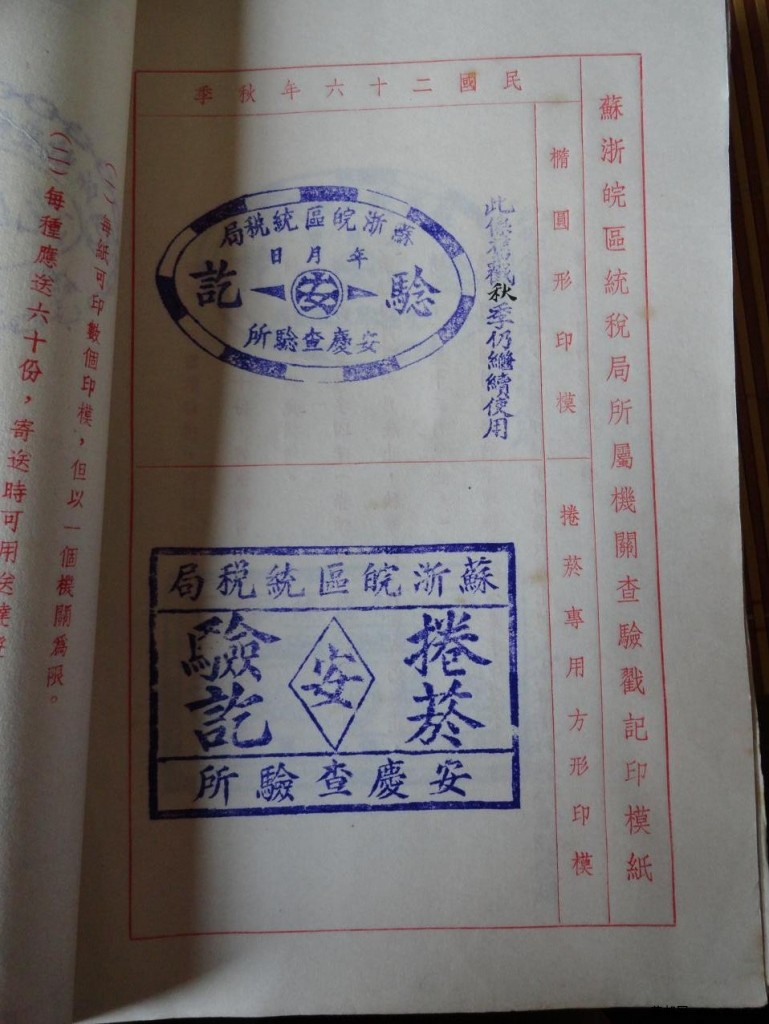 蘇浙皖區統稅局所屬機關查驗戳記印模紙
民國二十六年秋季
橢圓形印模
此係舊戳秋季仍繼續使用
蘇浙皖區統稅局
年月日
驗訖
安
安慶查驗所
捲菸專用方形印模
蘇浙皖區統稅局
捲菸
安
驗訖
安慶查驗所
(一)每紙可印數個印模，但以一個機關爲限。
(二)每種應送六十份，寄送時可用送達